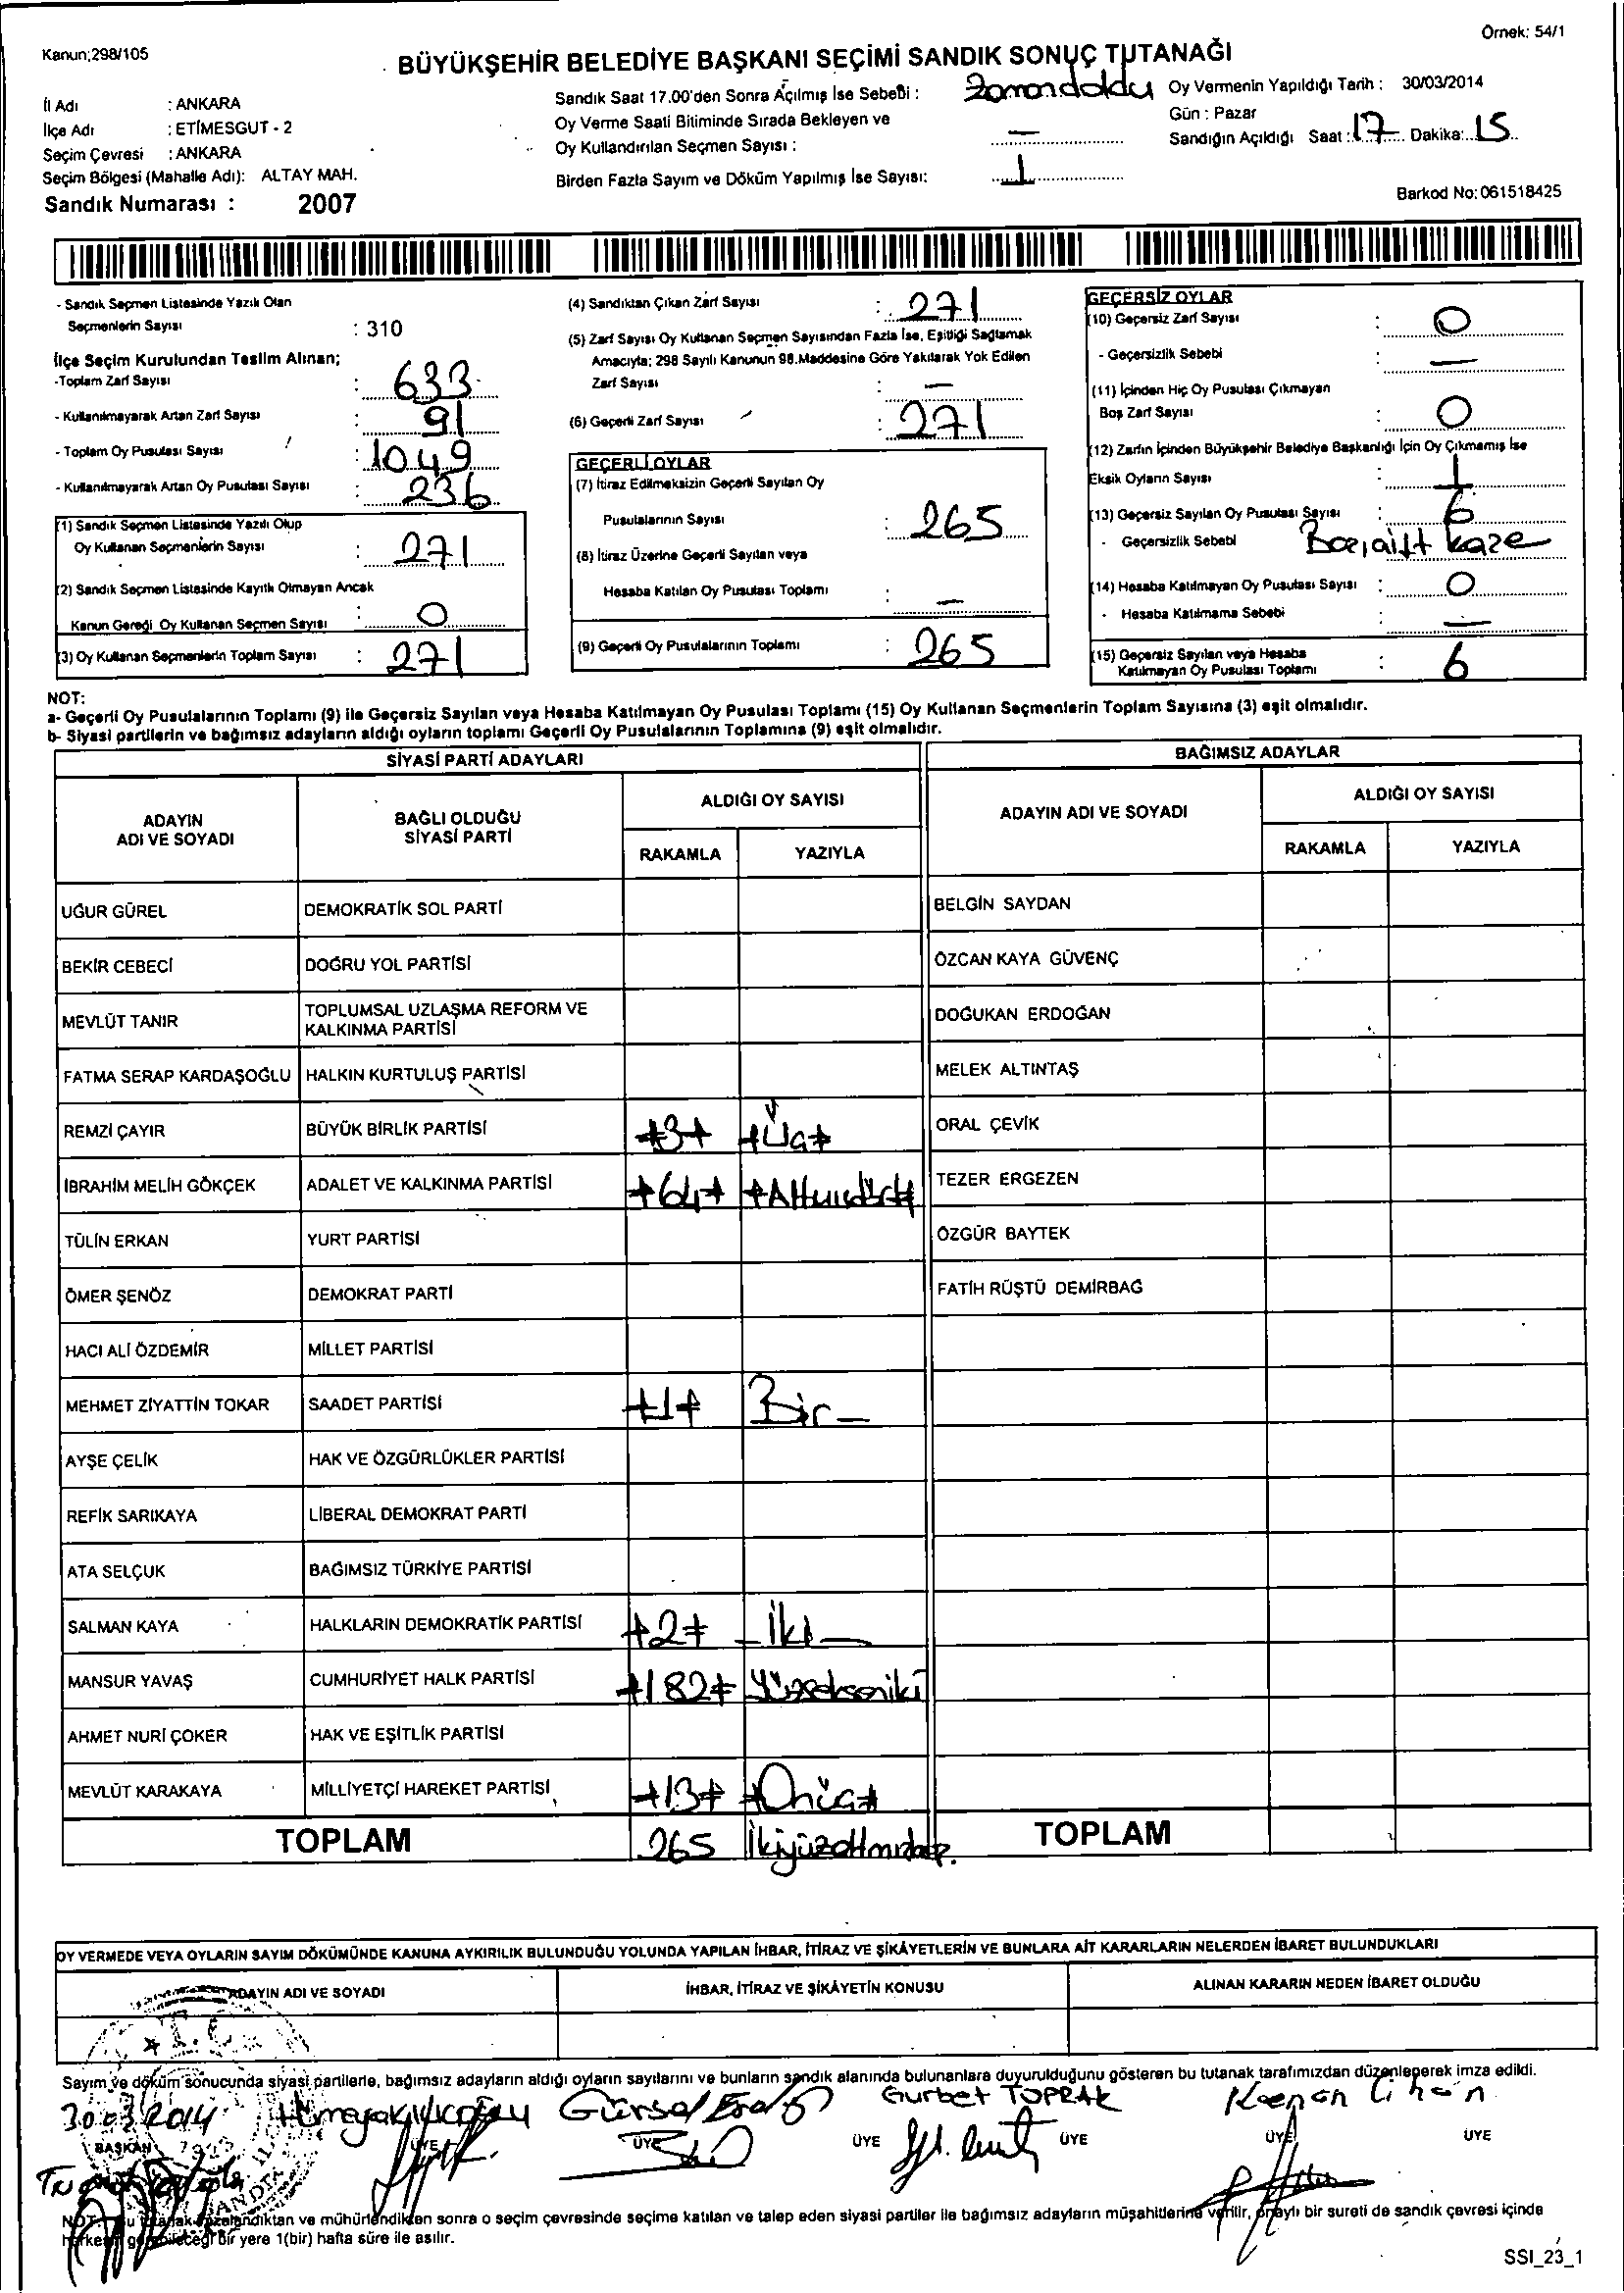 Kanun;298/105
Örnek: 54/1
BÜYÜKŞEHİR BELEDİYE BAŞKANI SEÇİMİ SANDIK SONUÇ TUTANAĞI
İl Adı : ANKARA
İlçe Adı : ETİMESGUT - 2
Seçim Çevresi : ANKARA
Seçim Bölgesi (Mahalle Adı): ALTAY MAH.
Sandık Numarası : 2007
Sandık Saat 17.00'den Sonra Açılmış İse Sebebi : Zaman doldu
Oy Verme Saati Bitiminde Sırada Bekleyen ve
Oy Kullandırılan Seçmen Sayısı : —
Birden Fazla Sayım ve Döküm Yapılmış İse Sayısı: 1
Oy Vermenin Yapıldığı Tarih : 30/03/2014
Gün : Pazar
Sandığın Açıldığı Saat : 17 Dakika: 15
Barkod No: 061518425
- Sandık Seçmen Listesinde Yazılı Olan
Seçmenlerin Sayısı : 310
İlçe Seçim Kurulundan Teslim Alınan;
-Toplam Zarf Sayısı : 633
- Kullanılmayarak Artan Zarf Sayısı : 91
- Toplam Oy Pusulası Sayısı : 1049
- Kullanılmayarak Artan Oy Pusulası Sayısı : 236
(1) Sandık Seçmen Listesinde Yazılı Olup
Oy Kullanan Seçmenlerin Sayısı : 271
(2) Sandık Seçmen Listesinde Kayıtlı Olmayan Ancak
Kanun Gereği Oy Kullanan Seçmen Sayısı : 0
(3) Oy Kullanan Seçmenlerin Toplam Sayısı : 271
(4) Sandıktan Çıkan Zarf Sayısı : 271
(5) Zarf Sayısı Oy Kullanan Seçmen Sayısından Fazla İse, Eşitliği Sağlamak
Amacıyla; 298 Sayılı Kanunun 98.Maddesine Göre Yakılarak Yok Edilen
Zarf Sayısı : —
(6) Geçerli Zarf Sayısı : 271
GEÇERLİ OYLAR
(7) İtiraz Edilmeksizin Geçerli Sayılan Oy
Pusulalarının Sayısı : 265
(8) İtiraz Üzerine Geçerli Sayılan veya
Hesaba Katılan Oy Pusulası Toplamı : —
(9) Geçerli Oy Pusulalarının Toplamı : 265
GEÇERSİZ OYLAR
(10) Geçersiz Zarf Sayısı : 0
- Geçersizlik Sebebi : —
(11) İçinden Hiç Oy Pusulası Çıkmayan
Boş Zarf Sayısı : 0
(12) Zarfın İçinden Büyükşehir Belediye Başkanlığı İçin Oy Çıkmamış İse
Eksik Oyların Sayısı : 1
(13) Geçersiz Sayılan Oy Pusulası Sayısı : 6
- Geçersizlik Sebebi
(14) Hesaba Katılmayan Oy Pusulası Sayısı : 0
- Hesaba Katılmama Sebebi : —
(15) Geçersiz Sayılan veya Hesaba
Katılmayan Oy Pusulası Toplamı : 6
NOT:
a- Geçerli Oy Pusulalarının Toplamı (9) ile Geçersiz Sayılan veya Hesaba Katılmayan Oy Pusulası Toplamı (15) Oy Kullanan Seçmenlerin Toplam Sayısına (3) eşit olmalıdır.
b- Siyasi partilerin ve bağımsız adayların aldığı oyların toplamı Geçerli Oy Pusulalarının Toplamına (9) eşit olmalıdır.
SİYASİ PARTİ ADAYLARI
ADAYIN ADI VE SOYADI
BAĞLI OLDUĞU SİYASİ PARTİ
ALDIĞI OY SAYISI
RAKAMLA YAZIYLA
UĞUR GÜREL DEMOKRATİK SOL PARTİ
BEKİR CEBECİ DOĞRU YOL PARTİSİ
MEVLÜT TANIR TOPLUMSAL UZLAŞMA REFORM VE KALKINMA PARTİSİ
FATMA SERAP KARDAŞOĞLU HALKIN KURTULUŞ PARTİSİ
REMZİ ÇAYIR BÜYÜK BİRLİK PARTİSİ 3 Üç
İBRAHİM MELİH GÖKÇEK ADALET VE KALKINMA PARTİSİ 64 Altmışdört
TÜLİN ERKAN YURT PARTİSİ
ÖMER ŞENÖZ DEMOKRAT PARTİ
HACI ALİ ÖZDEMİR MİLLET PARTİSİ
MEHMET ZİYATTİN TOKAR SAADET PARTİSİ 1 Bir
AYŞE ÇELİK HAK VE ÖZGÜRLÜKLER PARTİSİ
REFİK SARIKAYA LİBERAL DEMOKRAT PARTİ
ATA SELÇUK BAĞIMSIZ TÜRKİYE PARTİSİ
SALMAN KAYA HALKLARIN DEMOKRATİK PARTİSİ 2 İki
MANSUR YAVAŞ CUMHURİYET HALK PARTİSİ 182 Yüzsekseniki
AHMET NURİ ÇOKER HAK VE EŞİTLİK PARTİSİ
MEVLÜT KARAKAYA MİLLİYETÇİ HAREKET PARTİSİ 13 Onüç
TOPLAM 265 İkiyüzaltmışbeş
BAĞIMSIZ ADAYLAR
ADAYIN ADI VE SOYADI
ALDIĞI OY SAYISI
RAKAMLA YAZIYLA
BELGİN SAYDAN
ÖZCAN KAYA GÜVENÇ
DOĞUKAN ERDOĞAN
MELEK ALTINTAŞ
ORAL ÇEVİK
TEZER ERGEZEN
ÖZGÜR BAYTEK
FATİH RÜŞTÜ DEMİRBAĞ
TOPLAM
OY VERMEDE VEYA OYLARIN SAYIM DÖKÜMÜNDE KANUNA AYKIRILIK BULUNDUĞU YOLUNDA YAPILAN İHBAR, İTİRAZ VE ŞİKÂYETLERİN VE BUNLARA AİT KARARLARIN NELERDEN İBARET BULUNDUKLARI
ADAYIN ADI VE SOYADI
İHBAR, İTİRAZ VE ŞİKÂYETİN KONUSU
ALINAN KARARIN NEDEN İBARET OLDUĞU
Sayım ve döküm sonucunda siyasi partilerle, bağımsız adayların aldığı oyların sayılarını ve bunların sandık alanında bulunanlara duyurulduğunu gösteren bu tutanak tarafımızdan düzenlenerek imza edildi.
30 03 2014 Gürsel Gurbet TOPRAK Kenan
BAŞKAN ÜYE ÜYE ÜYE ÜYE ÜYE ÜYE
NOT: Bu tutanak imzalandıktan ve mühürlendikten sonra o seçim çevresinde seçime katılan ve talep eden siyasi partiler ile bağımsız adayların müşahitlerine verilir, onaylı bir sureti de sandık çevresi içinde
herkesin görebileceği bir yere 1(bir) hafta süre ile asılır.
SSI_23_1